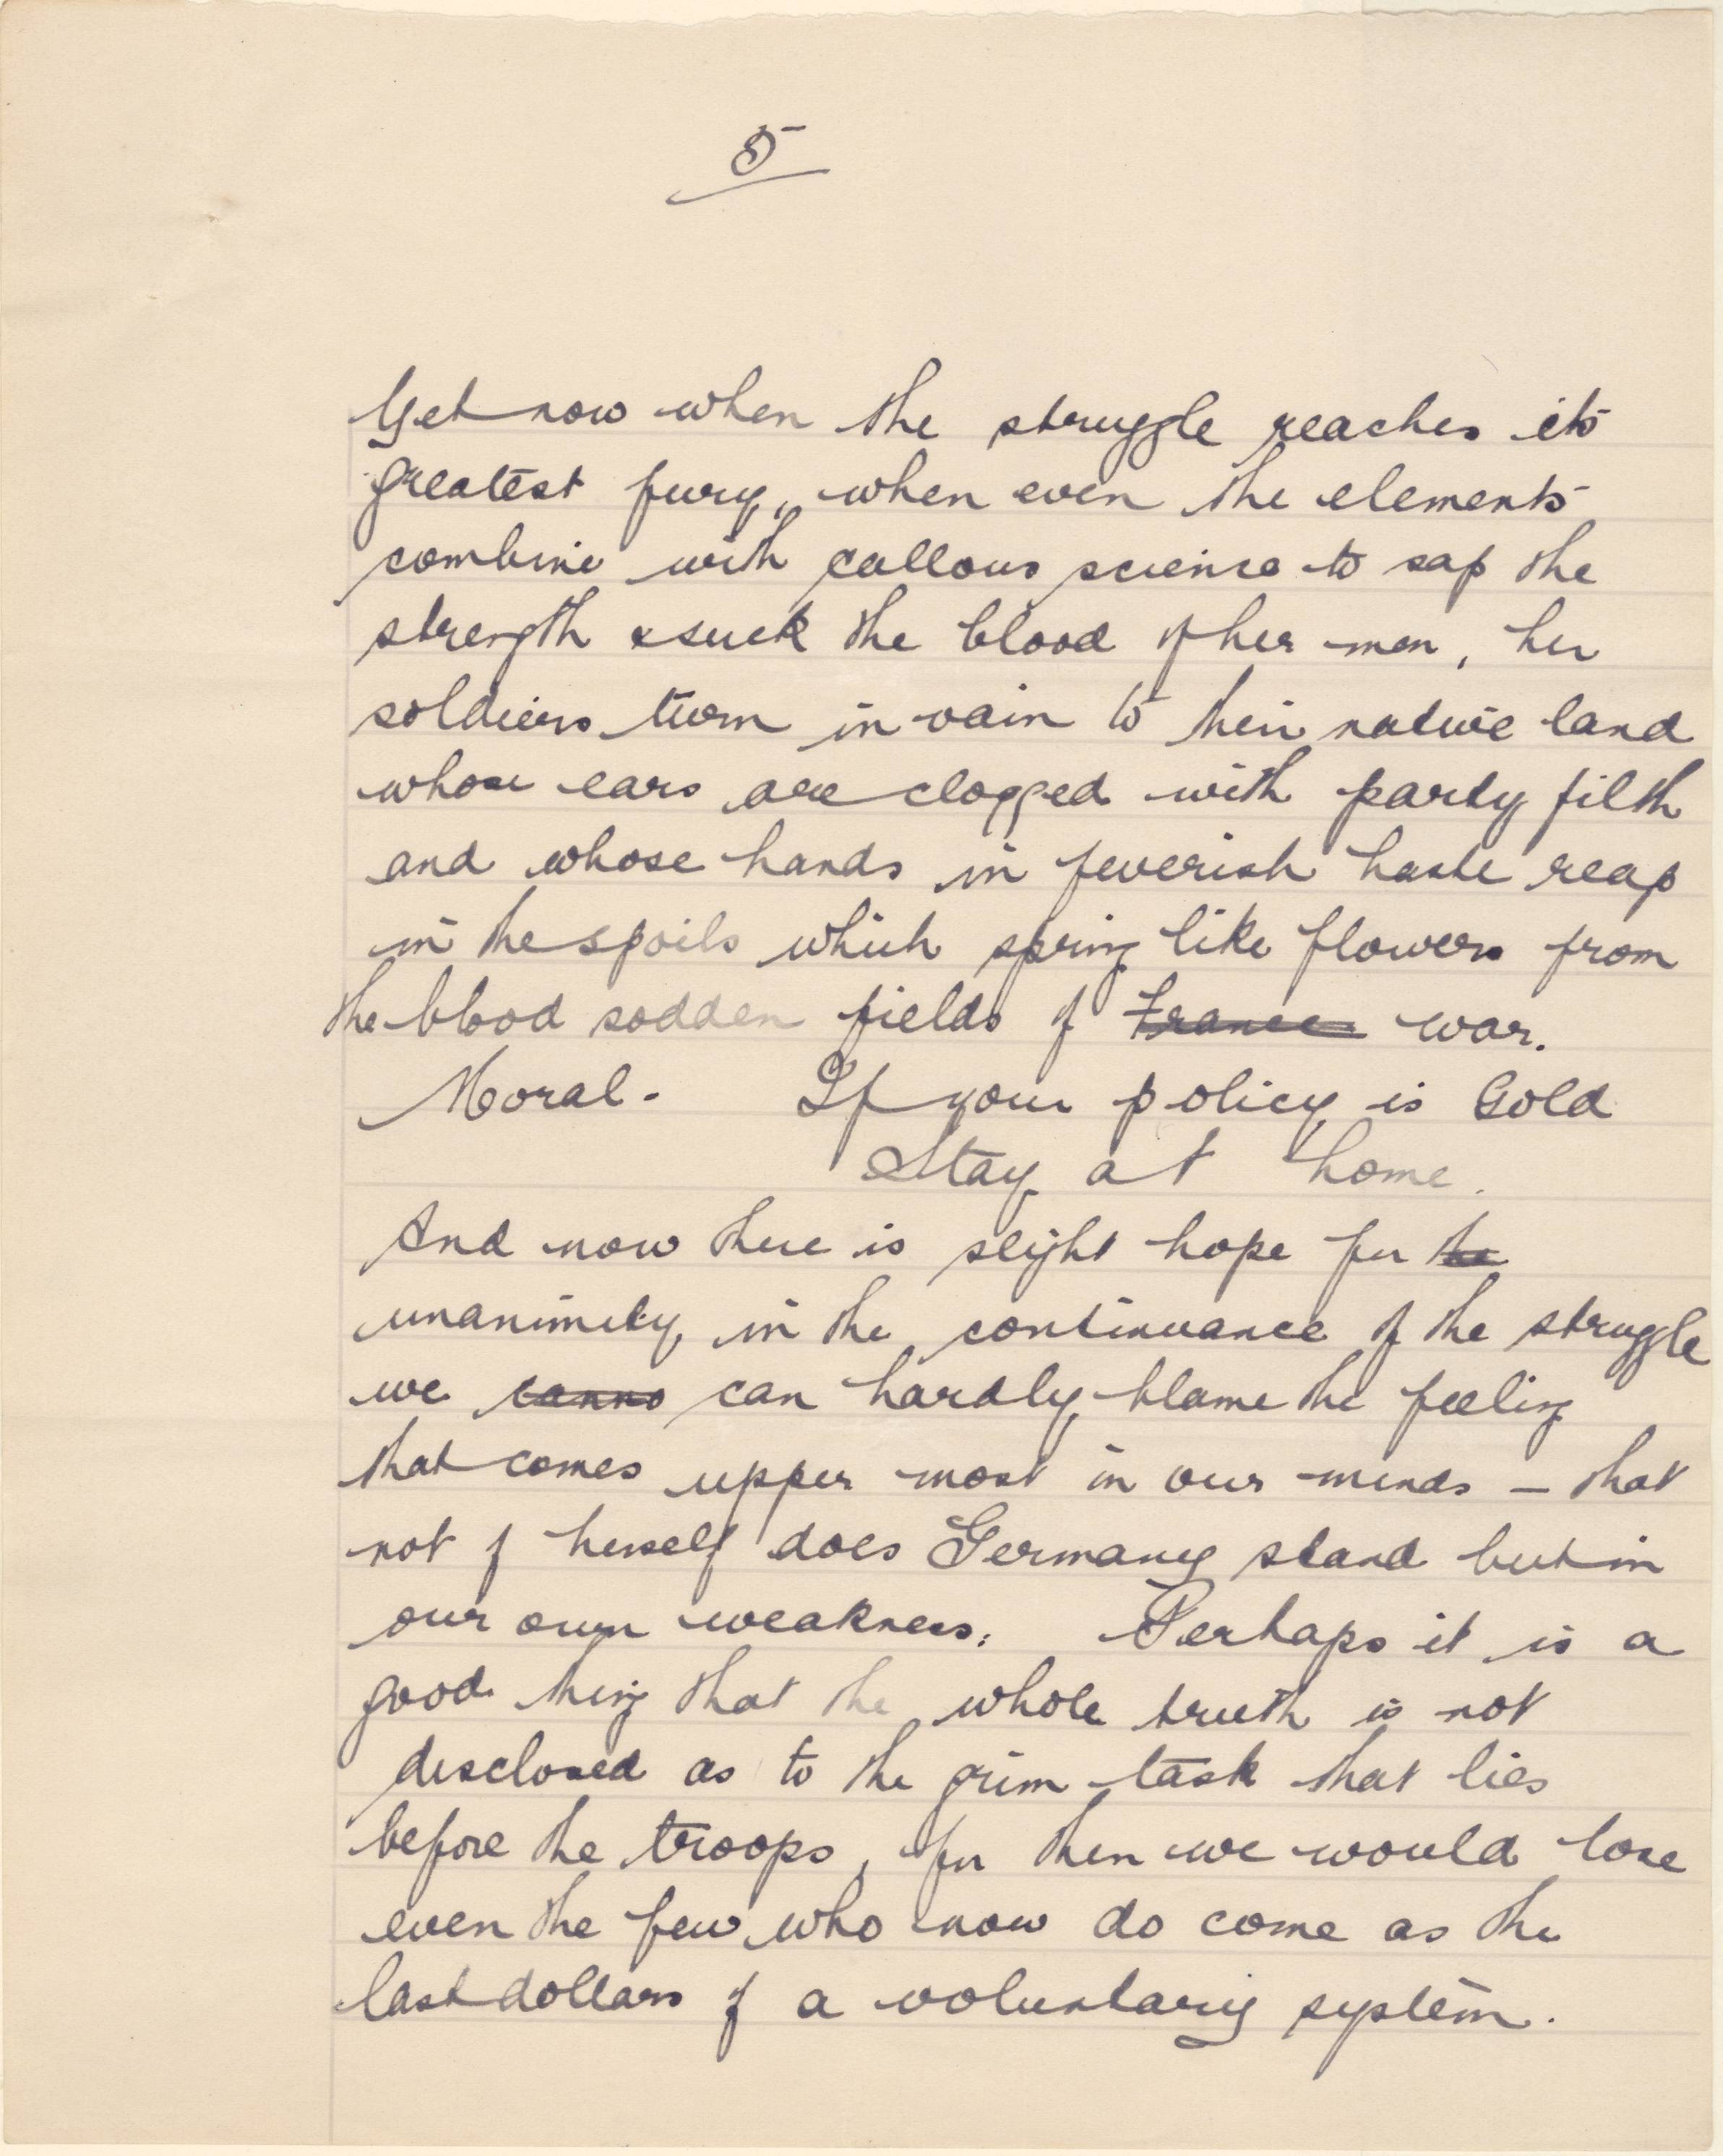 5
Yet now when the struggle reaches its
greatest fury, when even the elements
combine with callous science to sap the
strength & suck the blood of her men, her
soldiers turn in vain to their native land
whose ears are clogged with party filth
and whose hands in feverish haste reap
in the spoils which spring like flowers from
the blood sodden fields of France war.
Moral. If your policy is Gold
Stay at home.
And now there is slight hope for the
unanimity in the continuance of the struggle
we canno can hardly blame the feeling
that comes upper most in our minds – that
not of herself does Germany stand but in
our own weakness. Perhaps it is a
good thing that the whole truth is not
disclosed as to the grim task that lies
before the troops, for then we would lose
even the few who now do come as the
last dollars of a voluntary system.